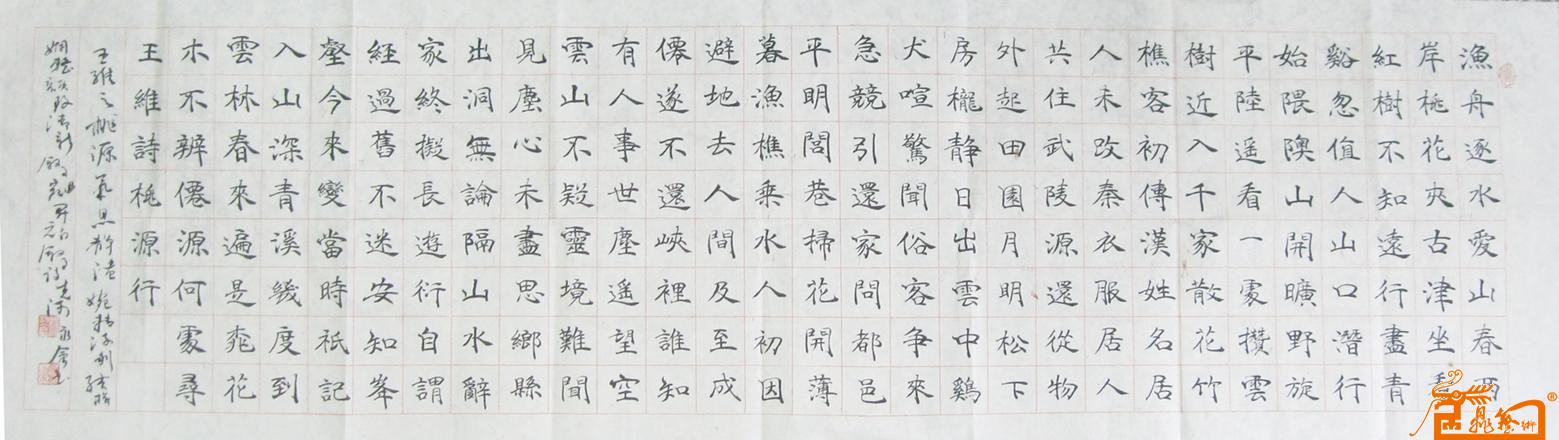 漁舟逐水愛山春兩
岸桃花夾古津坐看
紅樹不知遠行盡青
谿忽值人山口潛行
始隈隩山開曠野旋
平陸遥看一處攢雲
樹近入千家散花竹
樵客初傳漢姓名居
人未改秦衣服居人
共住武陵源還從物
外起田園月明松下
房櫳静日出雲中鷄
犬喧驚聞俗客争來
急競引還家問都邑
平明閭巷掃花開薄
暮漁樵乘水人初因
避地去人間及至成
僊遂不還峽裡誰知
有人事世塵遥望空
雲山不疑靈境難聞
見塵心未盡思鄉縣
出洞無論隔山水辭
家終擬長遊衍自謂
經過舊不迷安知峯
壑今來變當時祇記
入山深青溪幾度到
雲林春來遍是桃花
水不辨僊源何處尋
王維詩桃源行
王維之桃源氣息静